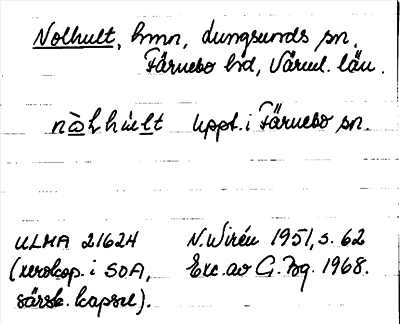 Nolhult, hmn, Lungsunds sn,
Färnebo hd, Värml. län.
uppt. i Färnebo sn.
ULMA 21624 N. Wirén 1951, s. 62
(xerokop. i SOA, Exc. av G. Bg. 1968.
särsk. kapsel).